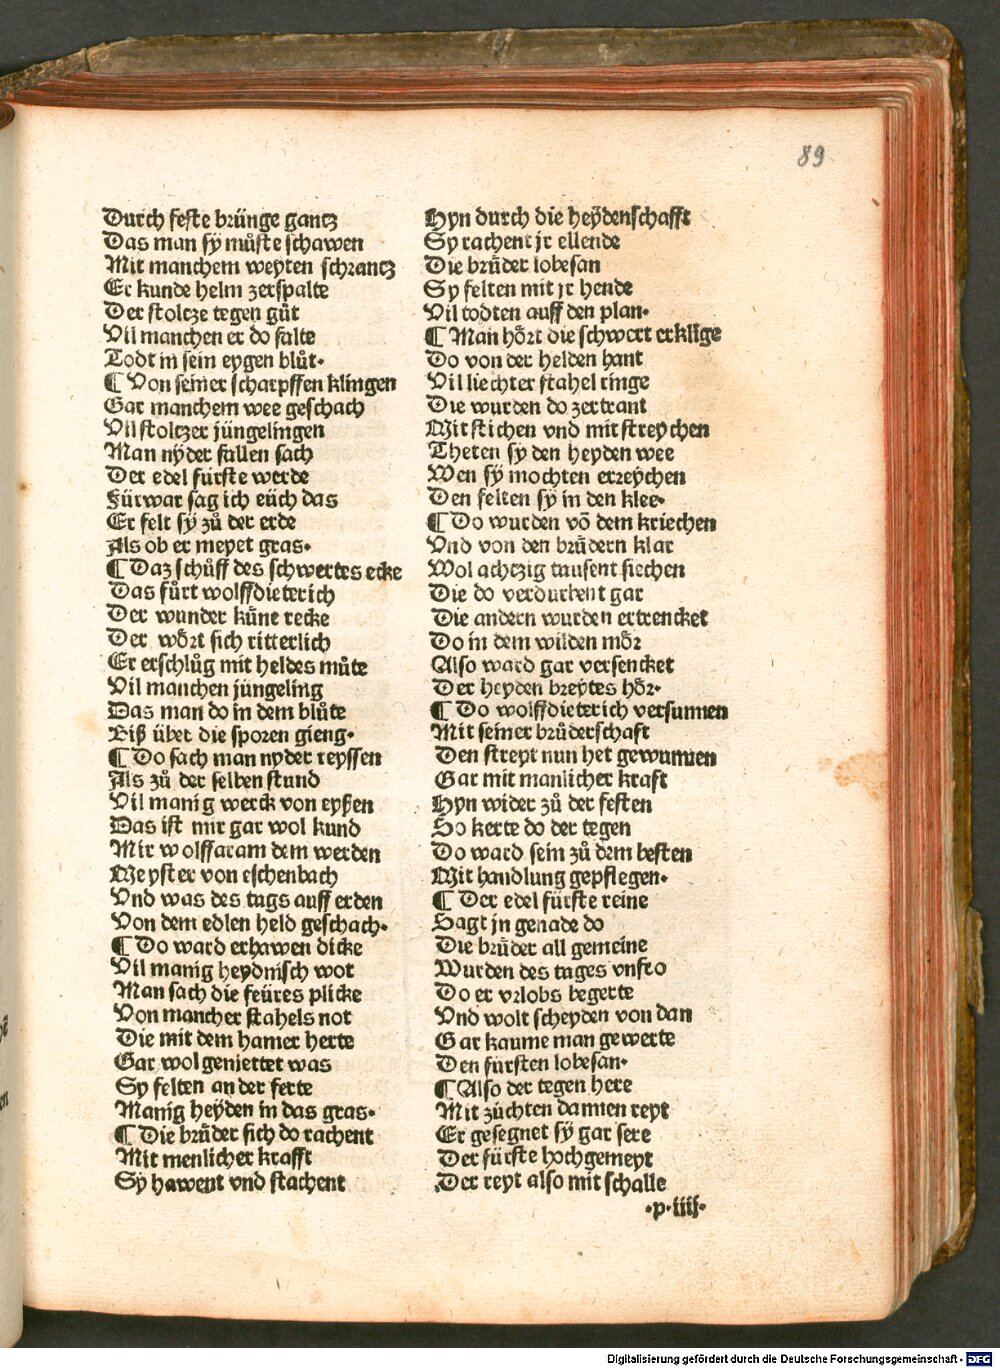 89
Durch feste brünge gantz
Das man sy můste schawen
Mit manchem weyten schrantz
Er kunde helm zerspalte
Der stoltze tegen gůt
Vil manchen er do falte
Todt in sein eygen blůt.
¶ Von seiner scharpffen klingen
Gar manchem wee geschach
Vil stoltzer jüngelingen
Man nyder fallen sach
Der edel fürste werde
Fürwar sag ich eüch das
Er felt sÿ zů der erde
Als ob er meyet gras.
¶ Daz schůff des schwertes ecke
Das fůrt wolffdieterich
Der wunder kůne recke
Der wört sich ritterlich
Er erschlůg mit heldes můte
Vil manchen jüngeling
Das man do in dem blůte
Biß über die sporen gieng.
¶ Do sach man nyder reyssen
Als zů der selben stund
Vil manig werck von eyßen
Das ist mir gar wol kund
Mir wolffaram dem werden
Meyster von eschenbach
Vnd was des tags auff erden
Von dem edlen held geschach.
¶ Do ward erhawen dicke
Vil manig heydnisch wot
Man sach die feüres plicke
Von mancher stahels not
Die mit dem hamer herte
Gar wol geniettet was
Sy felten an der ferte
Manig heÿden in das gras.
¶ Die brůder sich do rachent
Mit menlicher krafft
Sÿ hawent vnd stachent
Hyn durch die heÿdenschafft
Sy rachent jr ellende
Die brůder lobesan
Sy felten mit jr hende
Vil todten auff den plan.
¶ Man hört die schwert erklīge
Do von der helden hant
Vil liechter stahel ringe
Die wurden do zertrant
Mit stichen vnd mit streychen
Theten sy den heyden wee
Wen sÿ mochten erreÿchen
Den felten sÿ in den klee.
¶ Do wurden võ dem kriechen
Vnd von den brůdern klar
Wol achtzig tausent siechen
Die do verdurbent gar
Die andern wurden ertrencket
Do in dem wilden mör
Also ward gar versencket
Der heyden breÿtes hör.
¶ Do wolffdieterich versunnen
Mit seiner brůderschaft
Den streyt nun het gewunnen
Gar mit manlicher kraft
Hyn wider zů der festen
So kerte do der tegen
Do ward sein zů dem besten
Mit handlung gepflegen.
¶ Der edel fürste reine
Sagt jn genade do
Die brůder all gemeine
Wurden des tages vnfro
Do er vrlobs begerte
Vnd wolt scheyden von dan
Gar kaume man gewerte
Den fürsten lobesan.
¶ Also der tegen here
Mit züchten dannen reyt
Er gesegnet sÿ gar sere
Der fürste hochgemeyt
Der reyt also mit schalle
.p.iiij.
Digitalisierung gefördert durch die Deutsche Forschungsgemeinschaft - DFG